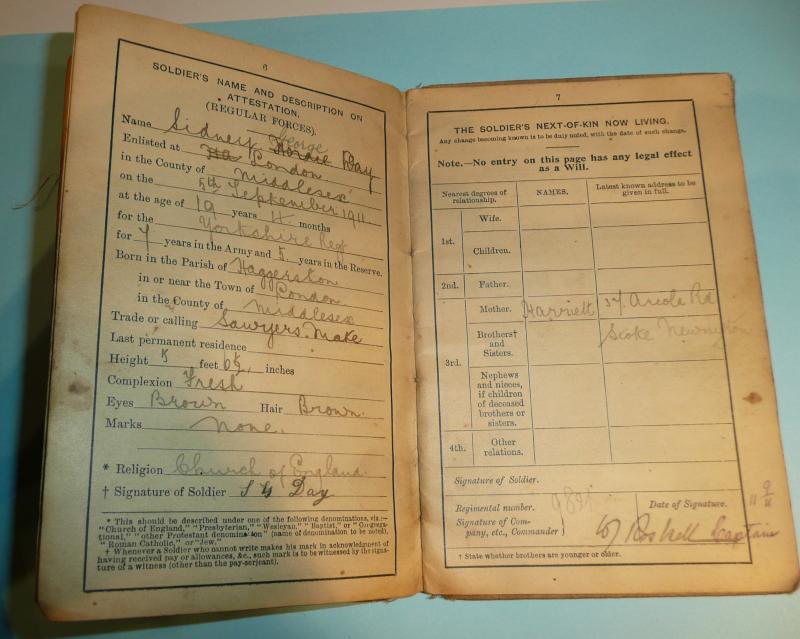 6
SOLDIER'S NAME AND DESCRIPTION ON
ATTESTATION.
(REGULAR FORCES).
George
Name Sidney Day
Enlisted at London
in the County of Middlesex
on the 5th September 1911
at the age of 19 years 11 months
for the Yorkshire Regt
for 7 years in the Army and 5 years in the Reserve.
Born in the Parish of Haggerston
in or near the Town of London
in the County of Middlesex
Trade or calling Sawyers Mate
Last permanent residence
Height 5 feet 6½ inches
Complexion Fresh
Eyes Brown Hair Brown.
Marks None.
* Religion Church of England.
† Signature of Soldier S G Day
* This should be described under one of the following denominations, viz.:—
"Church of England," "Presbyterian," "Wesleyan," "Baptist," or "Congrega-
tional," "other Protestant denomination" (name of denomination to be noted),
"Roman Catholic," or "Jew."
† Whenever a Soldier who cannot write makes his mark in acknowledgment of
having received pay or allowances, &c., such mark is to be witnessed by the signa-
ture of a witness (other than the pay-serjeant).
7
THE SOLDIER'S NEXT-OF-KIN NOW LIVING.
Any change becoming known is to be duly noted, with the date of such change.
Note.—No entry on this page has any legal effect
as a Will.
Nearest degrees of relationship. NAMES. Latest known address to be given in full.
1st. Wife.
Children.
2nd. Father.
3rd. Mother. Harriett 37 Arcola Rd
Brothers† and Sisters. Stoke Newington
Nephews and nieces, if children of deceased brothers or sisters.
4th. Other relations.
Signature of Soldier.
Regimental number. Date of Signature.
Signature of Com-
pany, etc., Commander Roskell Captain
† State whether brothers are younger or elder.